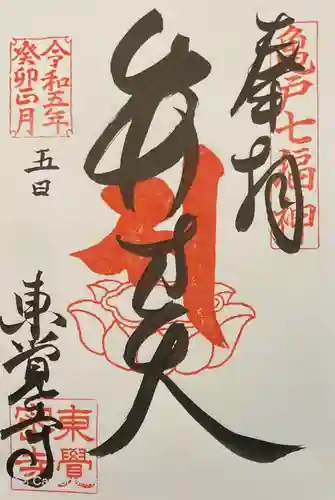 奉拝
亀戸七福神
弁才天
令和五年
癸卯正月
五日
東覚寺
東覺
密寺